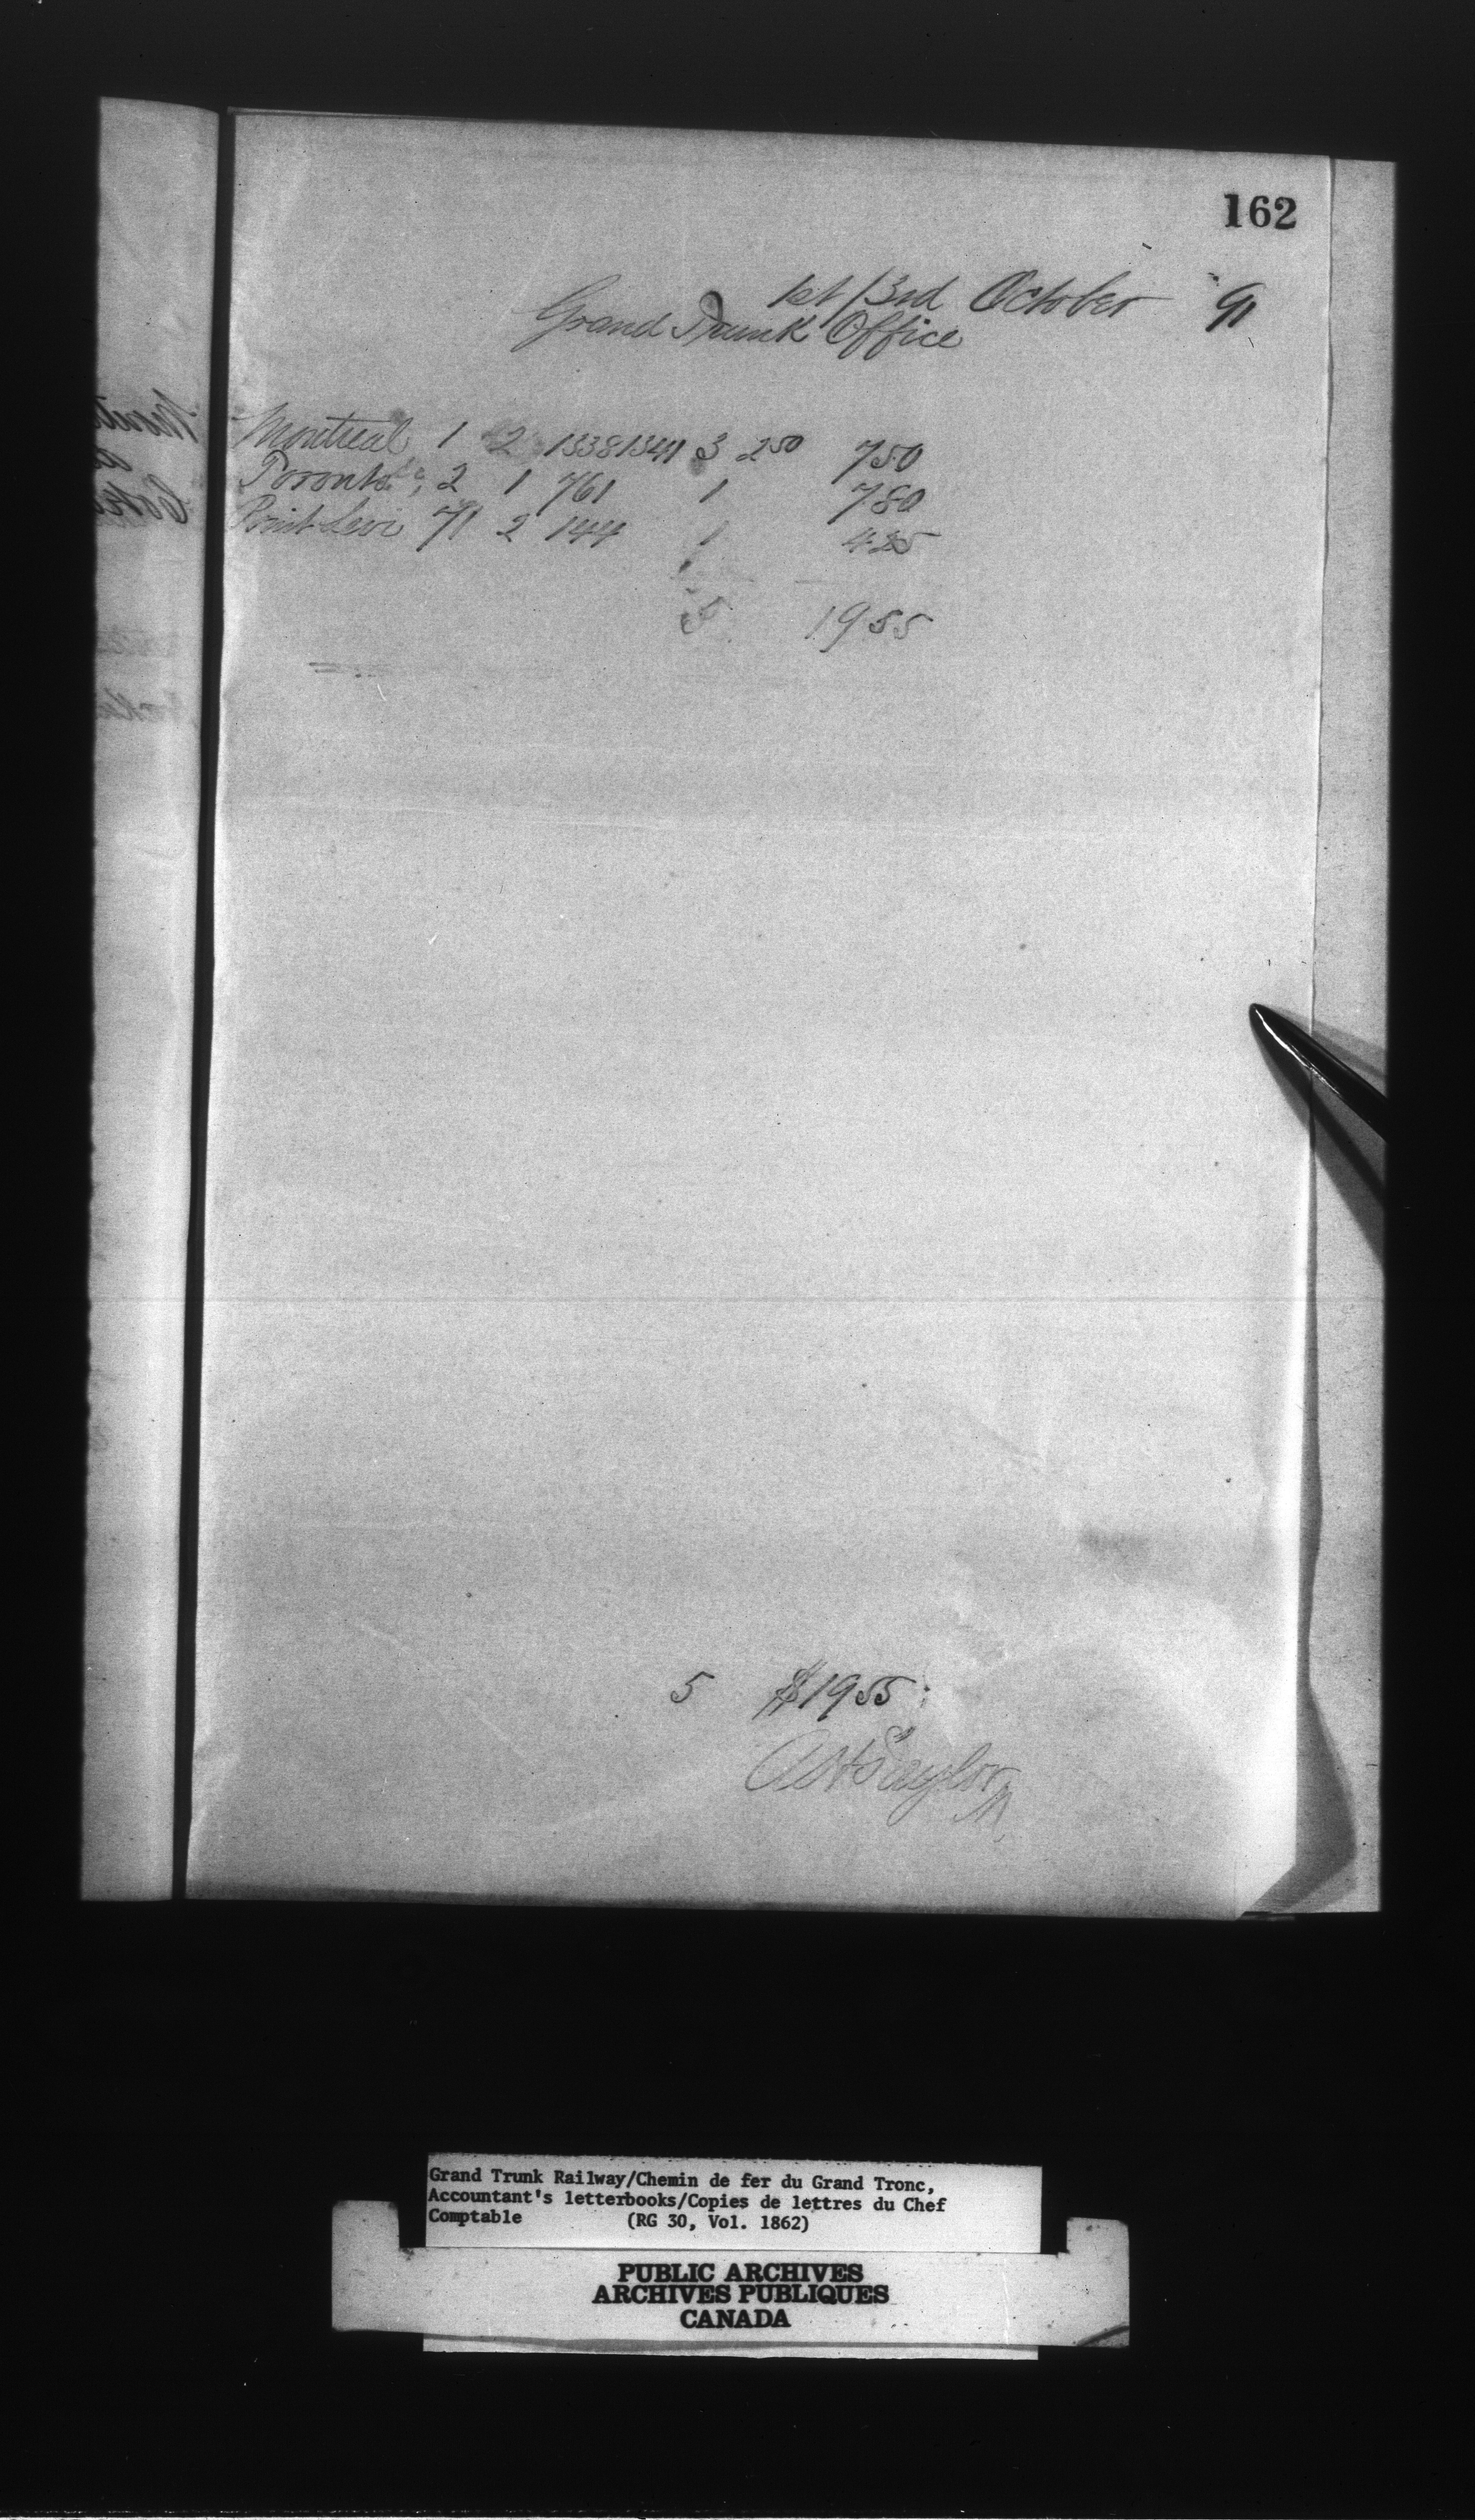 162
1st/3rd October 91
Grand Trunk Office
Montreal 1 2 1338 1341 3 2 50 7 50
Toronto 2 1 761 1 7 80
Point Levi 71 2 144 1 4 25
5 19 55
5 $19 55
Taylor
Grand Trunk Railway/Chemin de fer du Grand Tronc,
Accountant's letterbooks/Copies de lettres du Chef
Comptable (RG 30, Vol. 1862)
PUBLIC ARCHIVES
ARCHIVES PUBLIQUES
CANADA